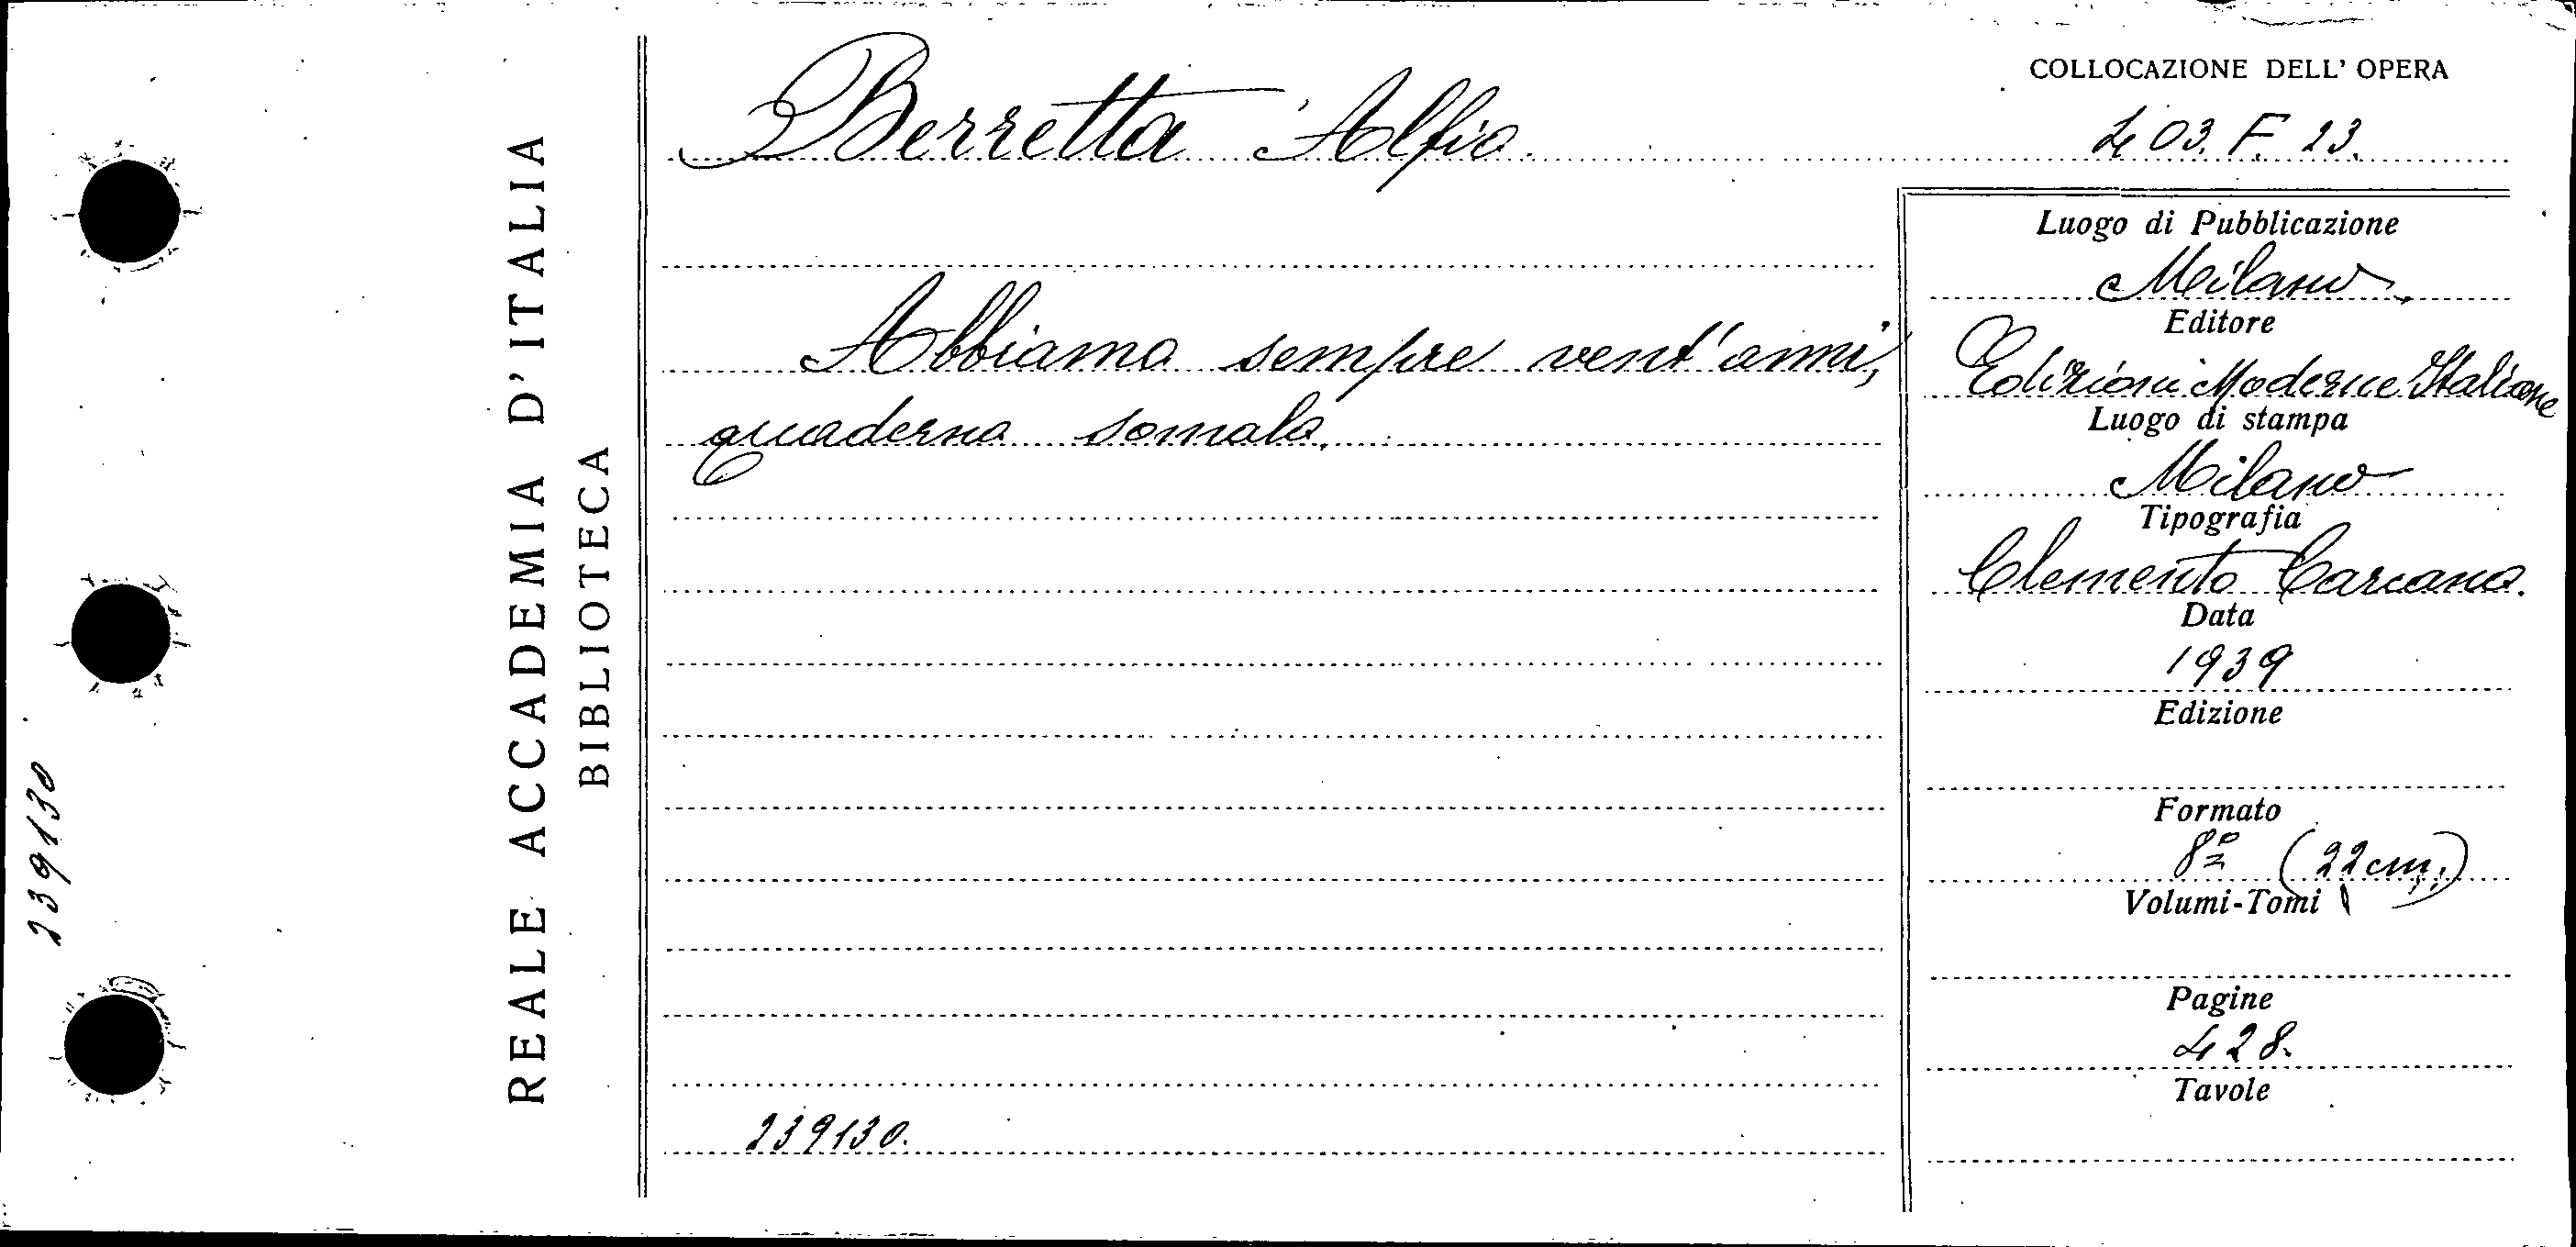 COLLOCAZIONE DELL' OPERA
Berretta Alfio.
403. F. 23.
Abbiamo sempre vent'anni,
quaderno somalo.
239130.
Luogo di Pubblicazione
Milano.
Editore
Edizioni Moderne Italiane
Luogo di stampa
Milano
Tipografia
Clemento Carcano.
Data
1939
Edizione
Formato
8º (22 cm.)
Volumi-Tomi
Pagine
428.
Tavole
REALE ACCADEMIA D'ITALIA
BIBLIOTECA
239130